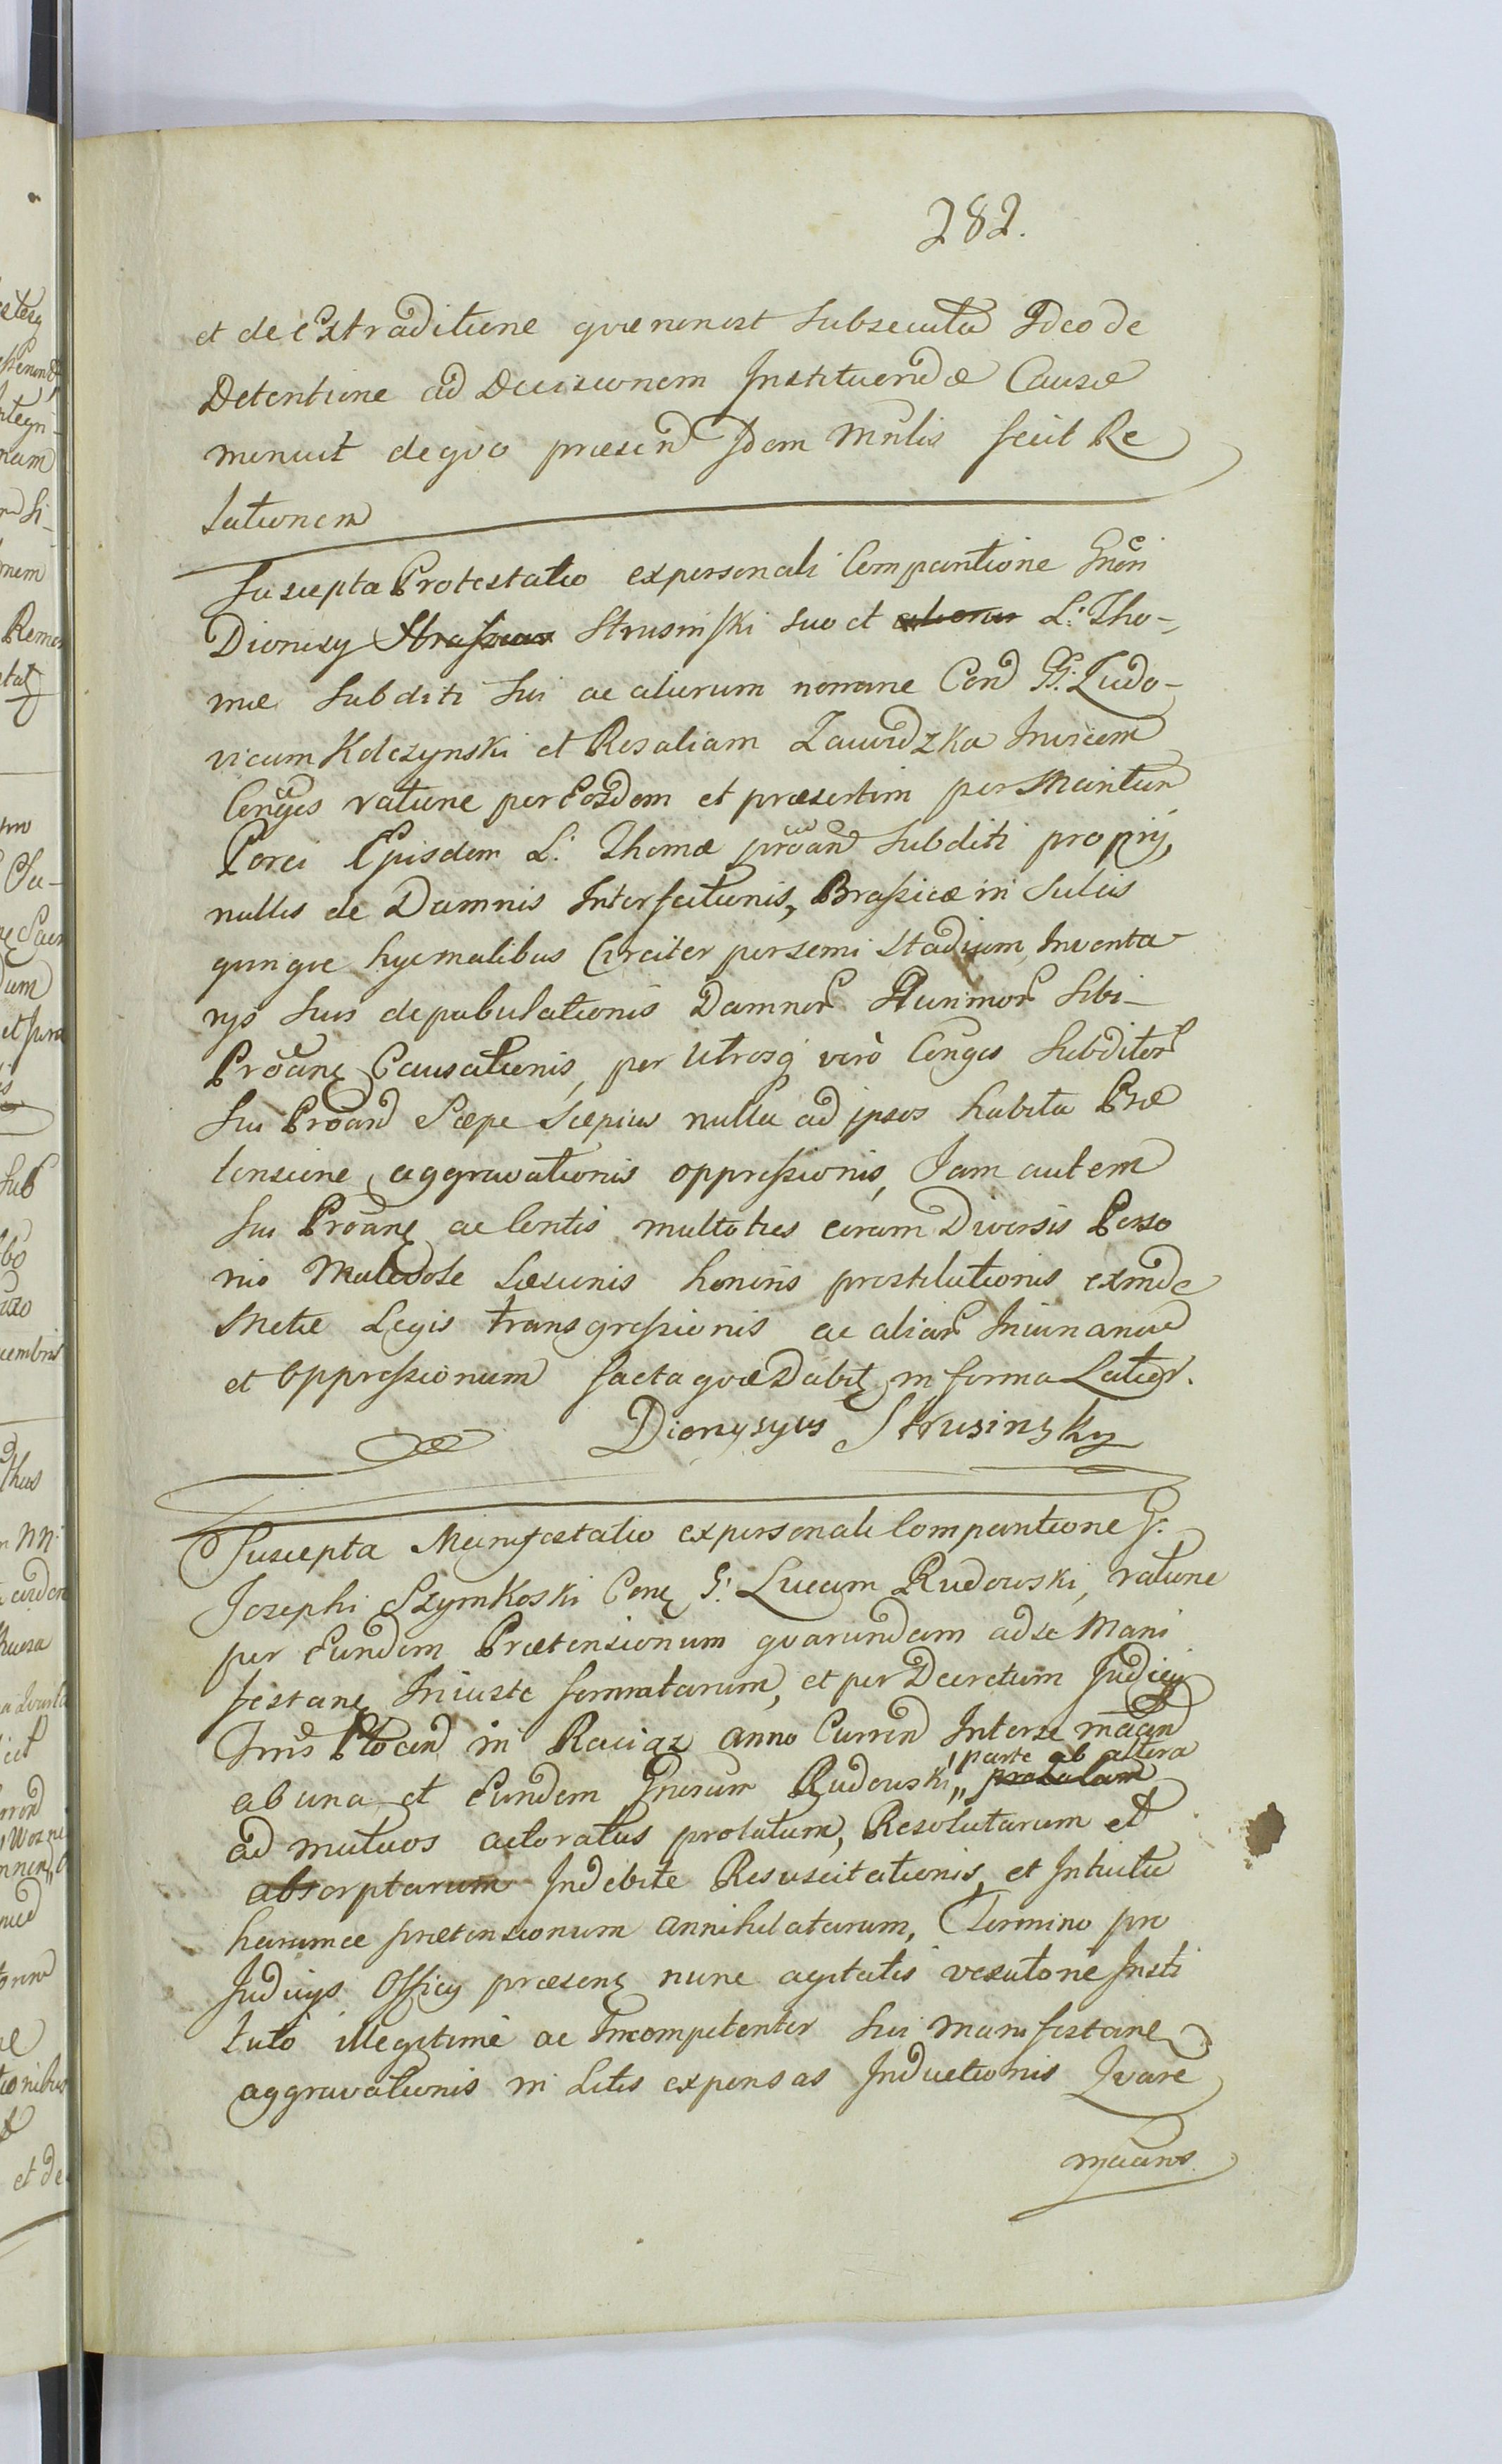 282.
et de Extraditione quae non est Subsecuta Ideo de
Detentione ad Decisionem Instituendae Causae
monuit de quo praesen Idem Mnlis fecit Re
lationem
Suscepta Protestatio ex personali Comparitione Gnosi
Dionisy Strusinski suo et L: Tho-
mae Subditi Sui ac aliorum nomine Con GG: Ludo-
vicum Kolczynski et Rosaliam Zawidzka Invicem
Conges ratione per Eosdem et praesertim per Maritum
Porci Episdem L: Thomae proan Subditi proprij,
nullis de Damnis Interfectionis, Brassicae in Sulcis
quinque hyemalibus Circiter per semi Stadium, Inventa
rys suis depabulationis Damnor Plurimor Sibi
Proang Causationis, per Utrosq vero Conges Subditor
Sui Proan Saepe Saepius nulla ad ipsos habita Prae
tensione, aggravationis oppressionis, Jam autem
Sui Proang ac lentis multoties coram Diversis Perso
nis Maledose Laesionis honoris prostitutionis exinde
Metae Legis transgressionis ac aliar Iniurianae
et oppressionum facta quae Dabit in forma Latior.
Dionysyus Strusinsky
Suscepta Manifestatio ex personali Comparitione G:
Josephi Szymkoski Cong G: Lucam Rudowski, ratione
per Eundem Praetensionum quarundam ad se Mani
festang Iniuste formatarum, et per Decretum Judicy
Trris Plocen in Raciąz Anno Curren Inter se
ab una et Eundem Gnosum Rudowski, parte ab altera prolatam
ad mutuos actoratus prolatum, Resolutarum et
absorptarum Indebite Resuscitationis, et Intuitu
harumce praetensionum annihilatarum, Termino pro
Judicys Officy praeseng nunc agitatis vexatorie Insti
tuto illegitime ac Incompetenter Sui manifestang
aggravationis in Litis expensas Inductionis Quare